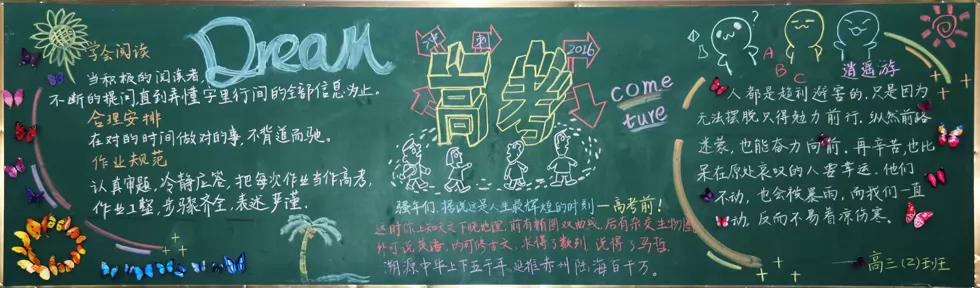 学会阅读
当积极的阅读者,
不断的提问,直到弄懂字里行间的全部信息为止。
合理安排
在对的时间做对的事,不背道而驰。
作业规范
认真审题,冷静应答,把每次作业当作高考,
作业工整,步骤齐全,表述严谨.
Dream
冲刺
2016
高考
come
ture
强年们,据说这是人生最辉煌的时刻—高考前!
这时你上知天文下晓地理,前有椭圆双曲线,后有杂交生物圈
外可说英语,内可修古文,求得了数列,说得了马哲,
溯源中华上下五千年,延推赤州陆海百千万。
?
A
B
C
逍遥游
人都是趋利避害的,只是因为
无法摆脱,只得勉力前行,纵然前路
迷蒙,也能奋力向前。再辛苦,也比
呆在原处哀叹的人要幸运。他们
不动,也会被暴雨,而我们一直
动,反而不易着凉伤寒。
高三(2)班